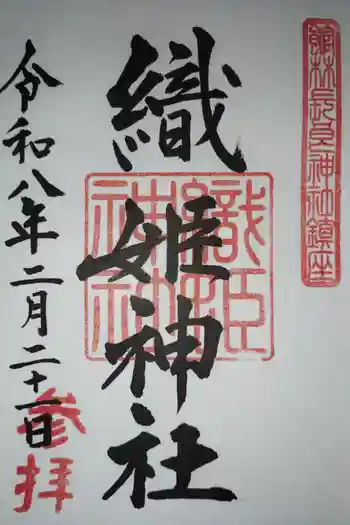 館林長良神社鎮座
織姫神社
織姫神社
令和八年二月二十一日
参拝